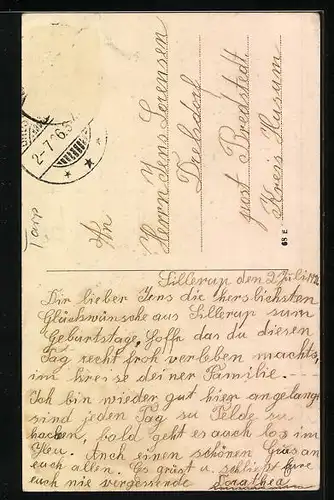 2-7 06.5-
An
Herrn Jens Sorensen
Drelsdorf
post Bredstedt
Kreis Husum
68 E
Tarp
Sillerup den 2 Juli
Dir lieber Jens die herslichsten
Glückswünsche aus Sillerup sum
Geburtstage, Hoffe das du diesen
Tag recht froh verleben machts,
im kreise deiner Familie.
Ich bin wieder gut hier angelangt
sind jeden Tag su Felde su
hacken, bald geht es auch los im
Heu. Auch einen schönen Grus an
euch allen. Es grüst u. schliest eure
euch nie vergessende Dorathea